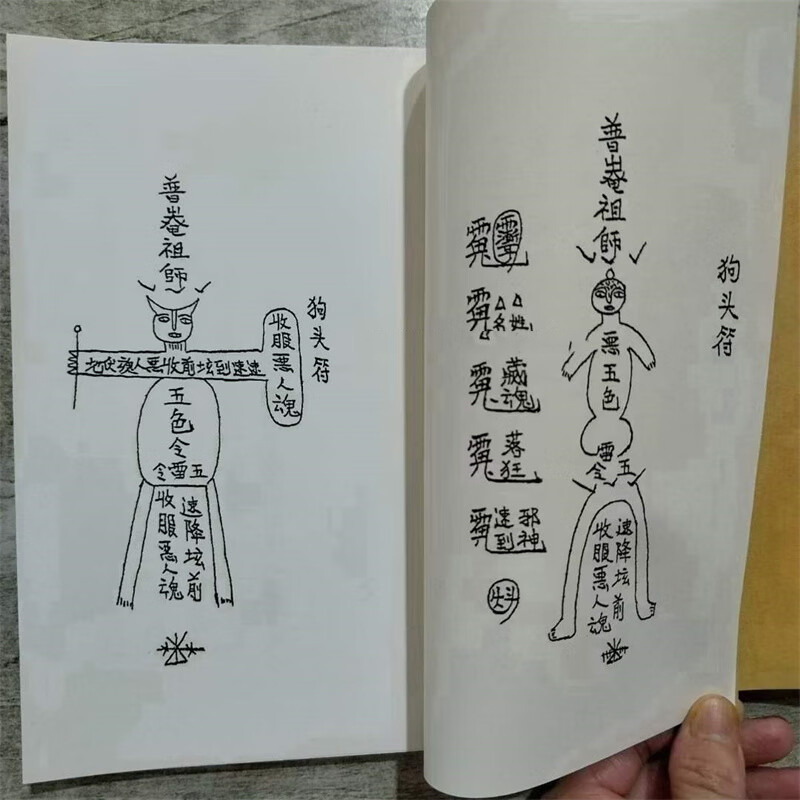 狗头符
普菴祖師
速速到坛前收惡人魂
收服惡人魂
五色令
五雷令
速降坛前
收服惡人魂
狗头符
普菴祖師
惡五色
五雷令
速降坛前
收服惡人魂
姓名
藏魂
落狂
邪神速到